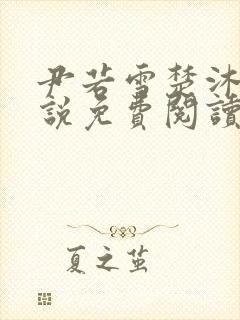 尹若雪楚沐
説免費閱讀
夏之茧